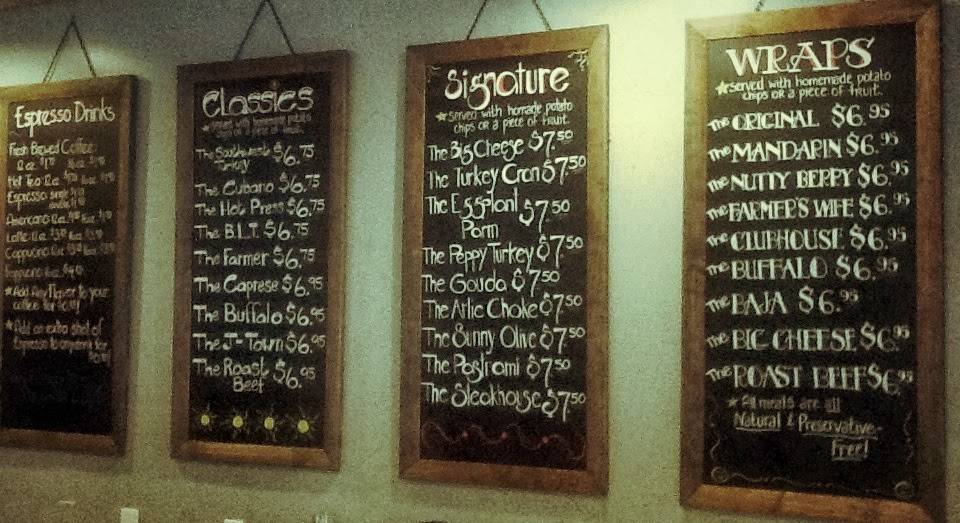 Espresso Drinks
Fresh Brewed Coffee:
12 oz.
Hot Tea 12 oz.
Espresso single
Americano 12 oz.
Latte 12 oz.
Cappuccino
★Add Any Flavor to your
coffee for
★Add an extra shot of
Espresso to any drink for
Classics
★served with homemade potato
chips or a piece of fruit.
The Southwest $6.75
Turkey
The Cubano $6.75
The Hot Press $6.75
The B.L.T. $6.75
The Farmer $6.75
The Caprese $6.95
The Buffalo $6.95
The J-Town $6.95
The Roast $6.95
Beef
Signature
★served with homade potato
chips or a piece of fruit.
The Big Cheese $7.50
The Turkey Cran $7.50
The Eggplant $7.50
Parm
The Peppy Turkey $7.50
The Gouda $7.50
The Artic Choke $7.50
The Sunny Olive $7.50
The Pastrami $7.50
The Steakhouse $7.50
WRAPS
★served with homemade potato
chips or a piece of fruit.
The ORIGINAL $6.95
The MANDARIN $6.95
The NUTTY BERRY $6.95
The FARMER'S WIFE $6.95
The CLUBHOUSE $6.95
The BUFFALO $6.95
The BAJA $6.95
The BIG CHEESE $6.95
The ROAST BEEF $6.95
★ All meats are all
Natural & Preservative-
Free!